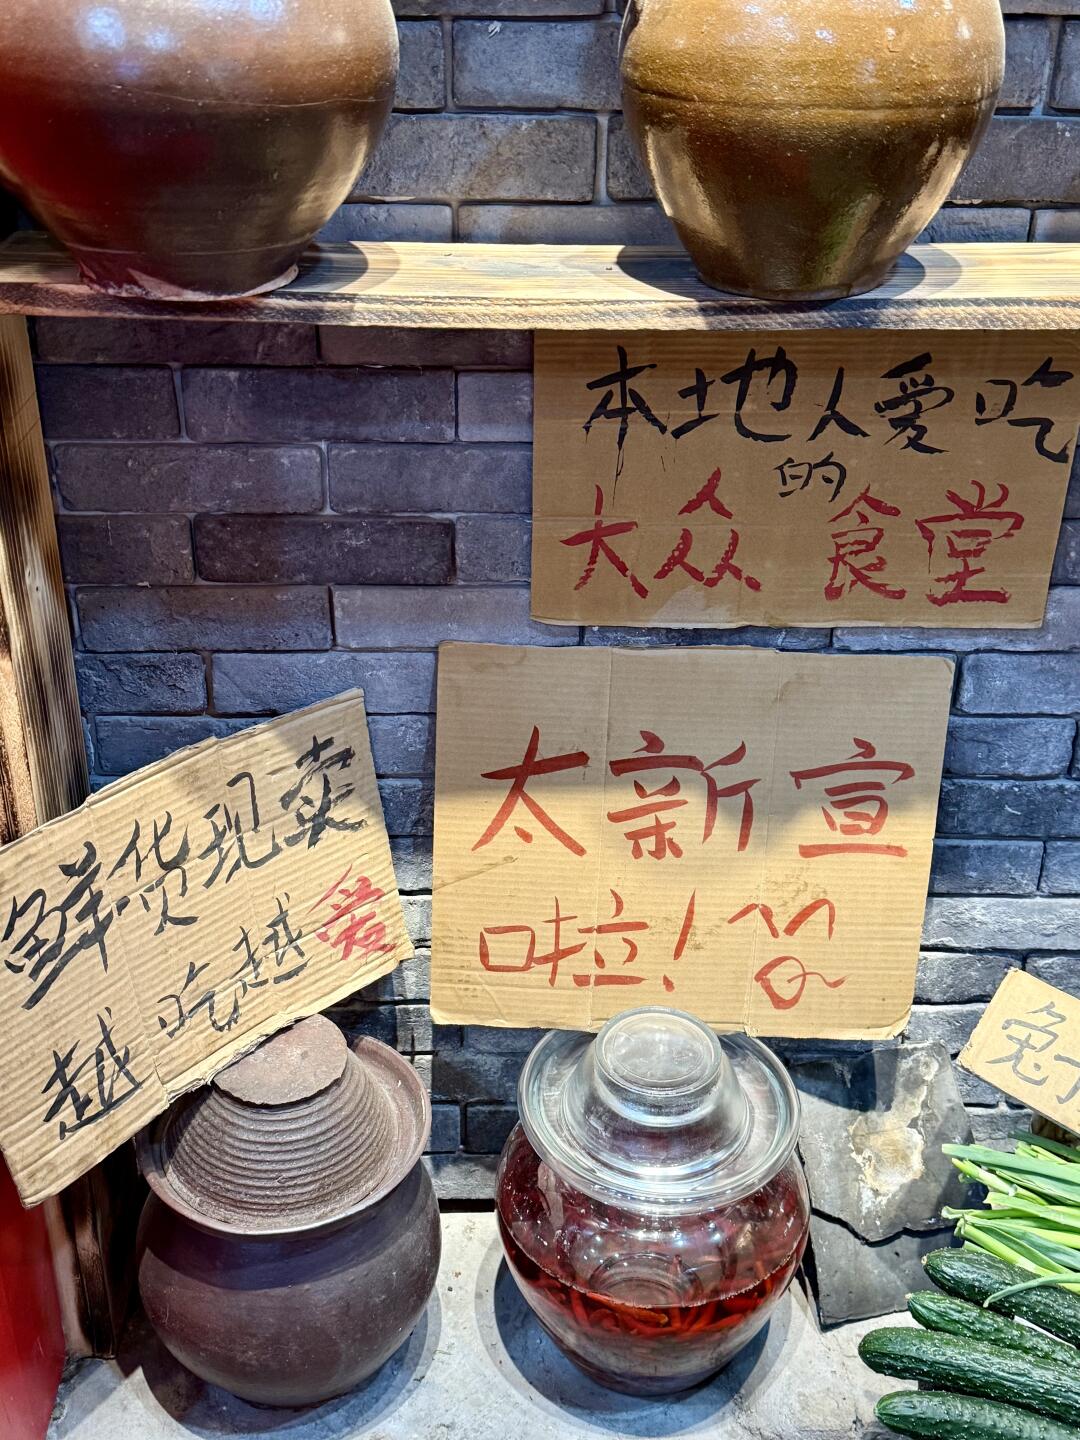 本地人爱吃
的
大众食堂
太新宣
啦!
鲜货现卖
越吃越爱